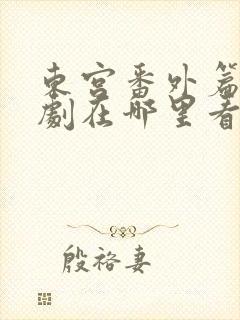 東宮番外篇
劇在哪里看
殷裕妻